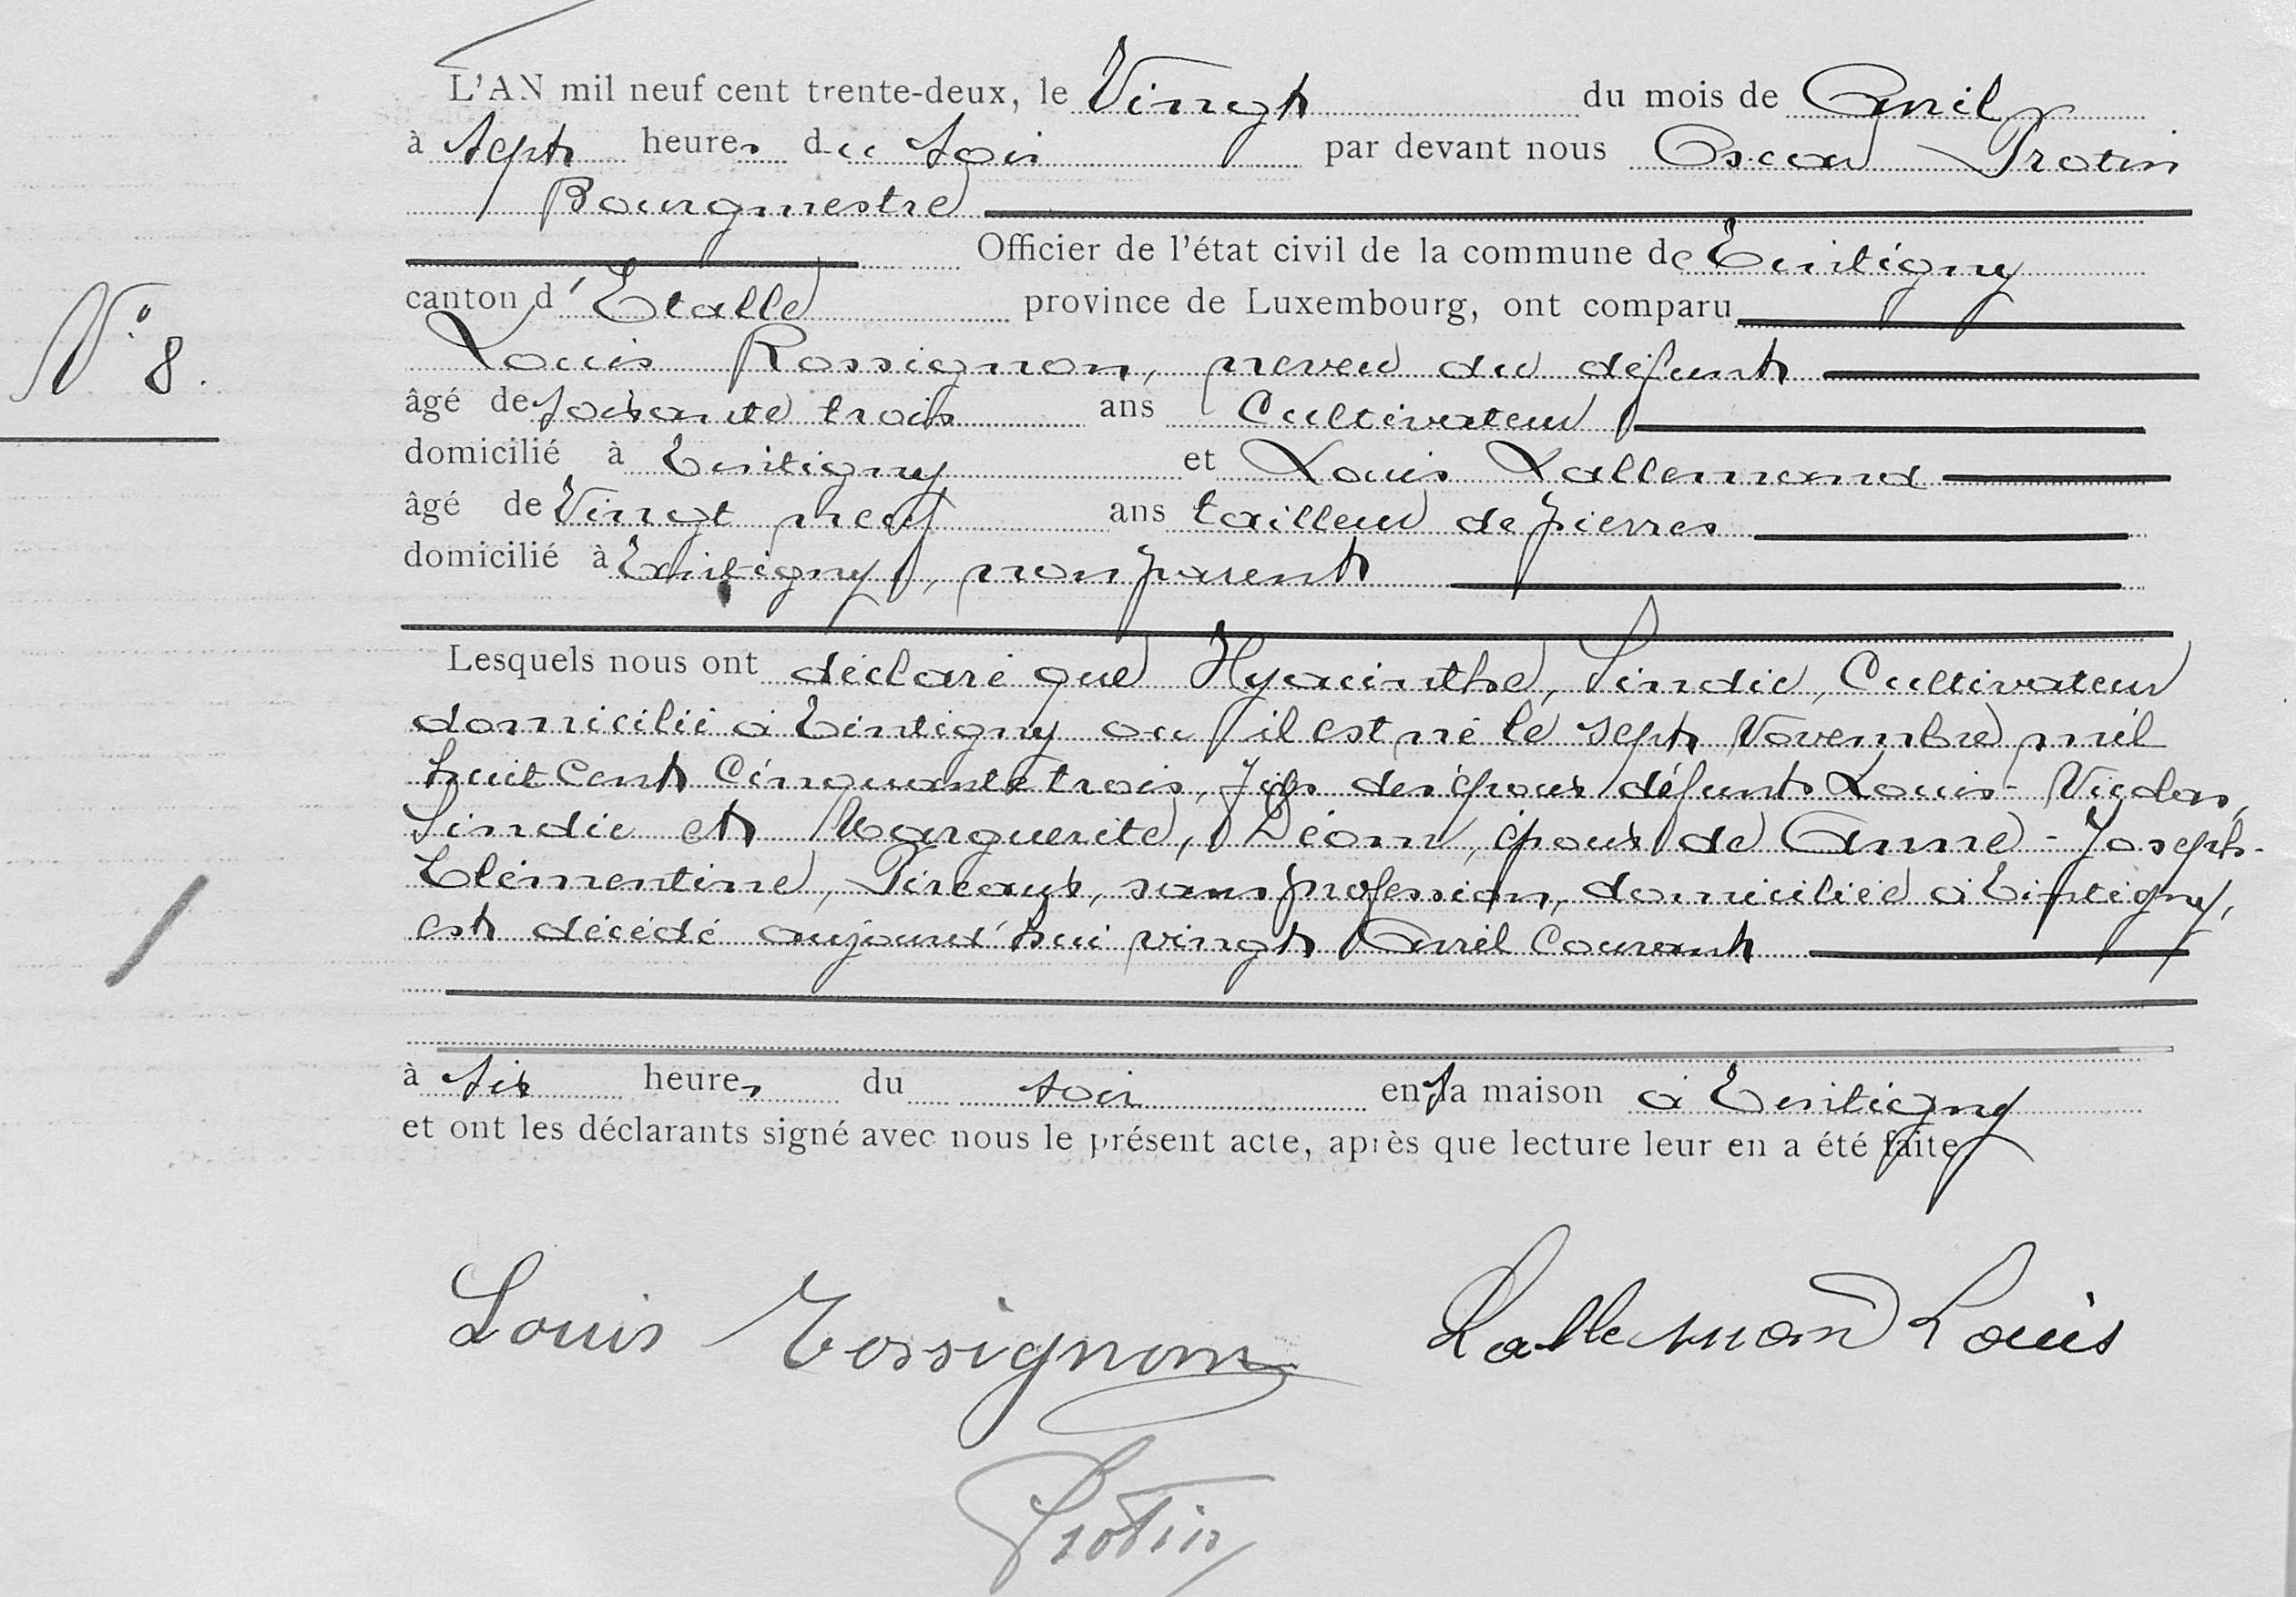 L'AN mil neuf cent trente-deux, le Vingt du mois de Avril
à sept heures du soir par devant nous Oscar Protin
Bourgmestre
Officier de l'état civil de la commune de Tintigny
canton d'Etalle province de Luxembourg, ont comparu
N° 8.
Louis Rossignon, neveu du défunt
âgé de soixante trois ans Cultivateur
domicilié à Tintigny et Louis Lallemand
âgé de Vingt neuf ans tailleur de pierres
domicilié à Tintigny, non parent
Lesquels nous ont déclaré que Hyacinthe, Sindic, Cultivateur
domicilié à Tintigny ou il est né le sept Novembre mil
huit Cent Cinquante trois, fils des époux défunts Louis-Nicolas,
Sindic et Marguerite, Léonn, époux de Anne-Joseph-
Clémentine, Pireaux, sans profession, domiciliée à Tintigny,
est décédé aujourd'hui vingt Avril Courant
à six heures du soir en sa maison à Tintigny
et ont les déclarants signé avec nous le présent acte, après que lecture leur en a été faite.
Louis Rossignon Lallemand Louis
Protin